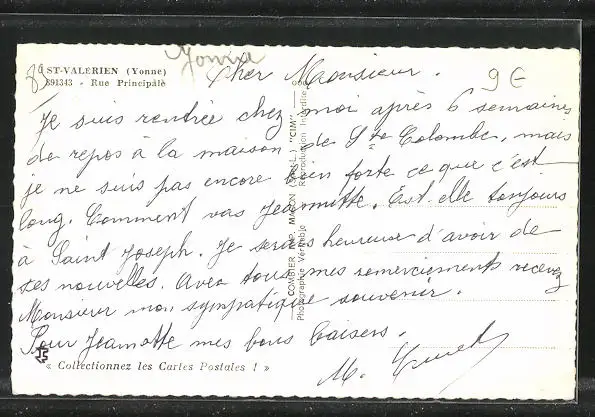 Yonne
ST-VALERIEN (Yonne)
891343 - Rue Principale
9 €
Cher Monsieur.
Je suis rentrée chez moi après 6 semaines
de repos à la maison de Ste Colombe, mais
je ne suis pas encore bien forte ce que c'est
long. Comment vas Jeannette. Est-elle toujours
à Saint Joseph. Je serais heureuse d'avoir de
ses nouvelles. Avec tous mes remerciements recevez
Monsieur mon sympatique souvenir.
Pour Jeannette mes bons baisers.
M.
« Collectionnez les Cartes Postales ! »
COMBIER IMP. MACON (S.-ET-L.) "CIM"
Photographie Véritable - Reproduction Interdite